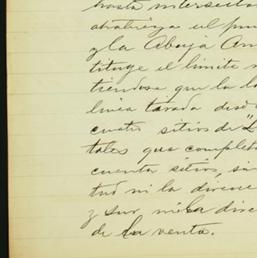 hasta intersecta
atraviesa el pun
y la Abeja Am
tituye el limite
tiendose que la l
linea tirada desd
cuatro sitios de "L
tales que complet
cuenta sitios, si
tud ni la direcc
y sur ni la dire
de la venta.